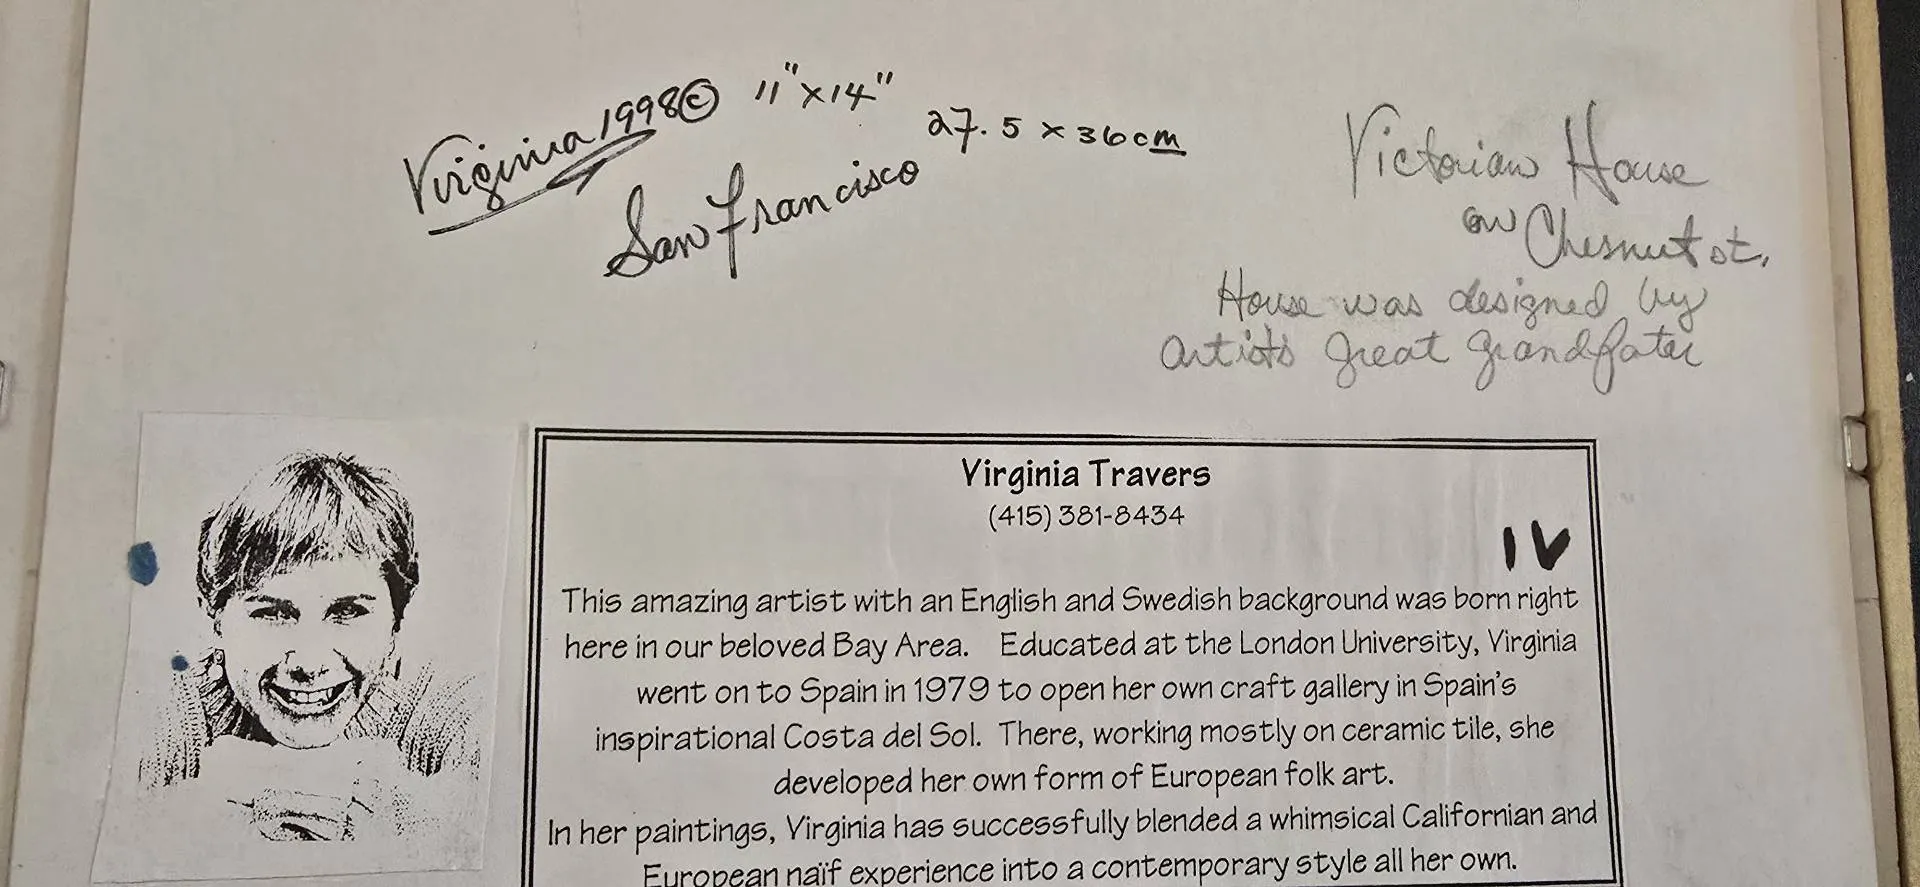 Virginia 1998 © 11" x 14"
27.5 x 36 cm
San Francisco
Victorian House
on Chesnut st.
House was designed by
artists great grandfater
Virginia Travers
(415) 381-8434
IV
This amazing artist with an English and Swedish background was born right
here in our beloved Bay Area. Educated at the London University, Virginia
went on to Spain in 1979 to open her own craft gallery in Spain's
inspirational Costa del Sol. There, working mostly on ceramic tile, she
developed her own form of European folk art.
In her paintings, Virginia has successfully blended a whimsical Californian and
European naïf experience into a contemporary style all her own.